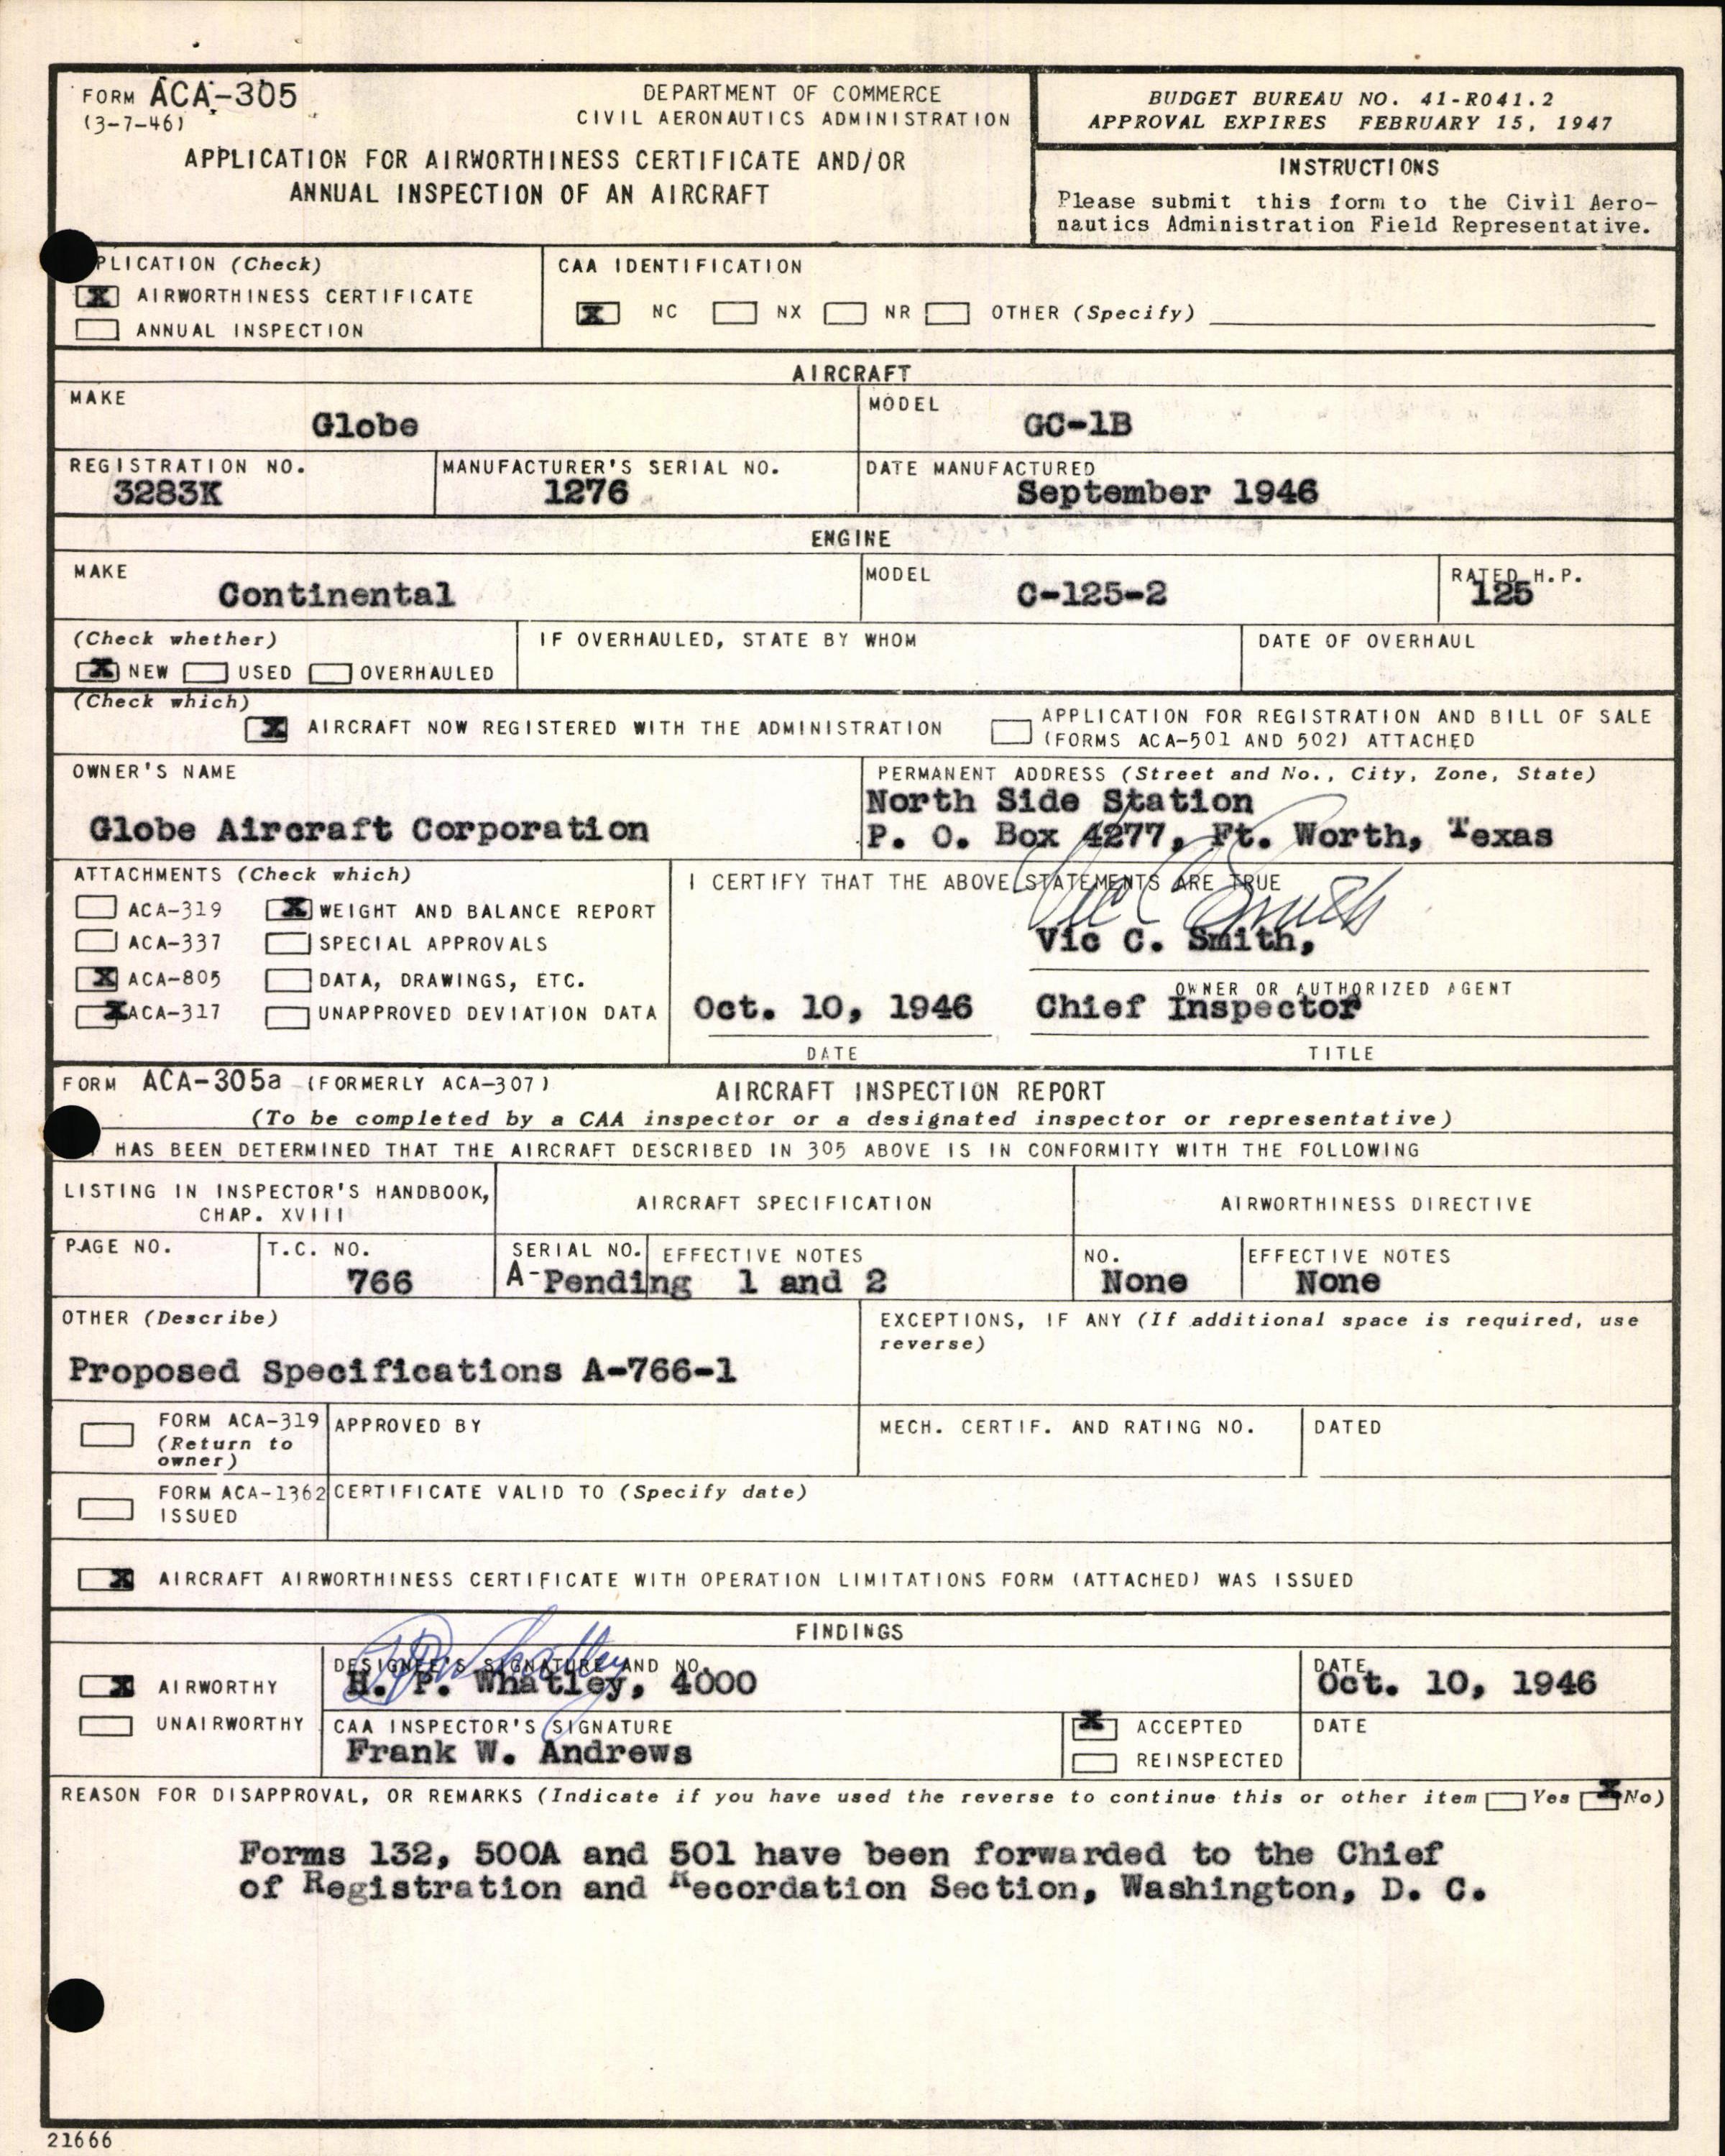 FORM ACA-305
(3-7-46)
DEPARTMENT OF COMMERCE
CIVIL AERONAUTICS ADMINISTRATION
APPLICATION FOR AIRWORTHINESS CERTIFICATE AND/OR
ANNUAL INSPECTION OF AN AIRCRAFT
BUDGET BUREAU NO. 41-R041.2
APPROVAL EXPIRES FEBRUARY 15, 1947
INSTRUCTIONS
Please submit this form to the Civil Aero-
nautics Administration Field Representative.
PLICATION (Check)
X AIRWORTHINESS CERTIFICATE
ANNUAL INSPECTION
CAA IDENTIFICATION
X NC NX NR OTHER (Specify)
AIRCRAFT
MAKE
Globe
MODEL
GC-1B
REGISTRATION NO.
3283K
MANUFACTURER'S SERIAL NO.
1276
DATE MANUFACTURED
September 1946
ENGINE
MAKE
Continental
MODEL
C-125-2
RATED H.P.
125
(Check whether)
X NEW USED OVERHAULED
IF OVERHAULED, STATE BY WHOM
DATE OF OVERHAUL
(Check which)
X AIRCRAFT NOW REGISTERED WITH THE ADMINISTRATION
APPLICATION FOR REGISTRATION AND BILL OF SALE
(FORMS ACA-501 AND 502) ATTACHED
OWNER'S NAME
Globe Aircraft Corporation
PERMANENT ADDRESS (Street and No., City, Zone, State)
North Side Station
P. O. Box 4277, Ft. Worth, Texas
ATTACHMENTS (Check which)
ACA-319 X WEIGHT AND BALANCE REPORT
ACA-337 SPECIAL APPROVALS
X ACA-805 DATA, DRAWINGS, ETC.
X ACA-317 UNAPPROVED DEVIATION DATA
I CERTIFY THAT THE ABOVE STATEMENTS ARE TRUE
Vic C Smith
Vic C. Smith,
OWNER OR AUTHORIZED AGENT
Oct. 10, 1946 Chief Inspector
DATE TITLE
FORM ACA-305a (FORMERLY ACA-307) AIRCRAFT INSPECTION REPORT
(To be completed by a CAA inspector or a designated inspector or representative)
HAS BEEN DETERMINED THAT THE AIRCRAFT DESCRIBED IN 305 ABOVE IS IN CONFORMITY WITH THE FOLLOWING
LISTING IN INSPECTOR'S HANDBOOK,
CHAP. XVIII
AIRCRAFT SPECIFICATION
AIRWORTHINESS DIRECTIVE
PAGE NO.
T.C. NO.
766
SERIAL NO. EFFECTIVE NOTES
A-Pending 1 and 2
NO.
None
EFFECTIVE NOTES
None
OTHER (Describe)
Proposed Specifications A-766-1
EXCEPTIONS, IF ANY (If additional space is required, use
reverse)
FORM ACA-319
(Return to
owner)
APPROVED BY
MECH. CERTIF. AND RATING NO.
DATED
FORM ACA-1362
ISSUED
CERTIFICATE VALID TO (Specify date)
X AIRCRAFT AIRWORTHINESS CERTIFICATE WITH OPERATION LIMITATIONS FORM (ATTACHED) WAS ISSUED
FINDINGS
X AIRWORTHY
UNAIRWORTHY
HP Whatley
DESIGNEE'S SIGNATURE AND NO.
H. P. Whatley, 4000
DATE
Oct. 10, 1946
CAA INSPECTOR'S SIGNATURE
Frank W. Andrews
X ACCEPTED
REINSPECTED
DATE
REASON FOR DISAPPROVAL, OR REMARKS (Indicate if you have used the reverse to continue this or other item Yes X No)
Forms 132, 500A and 501 have been forwarded to the Chief
of Registration and Recordation Section, Washington, D. C.
21666